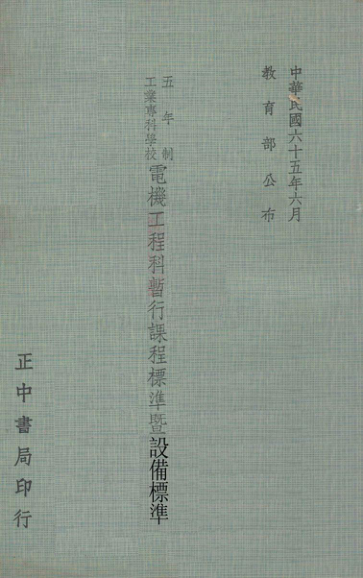 中華民國六十五年六月
教育部公布
五年制
工業專科學校
電機工程科暫行課程標準暨設備標準
正中書局印行